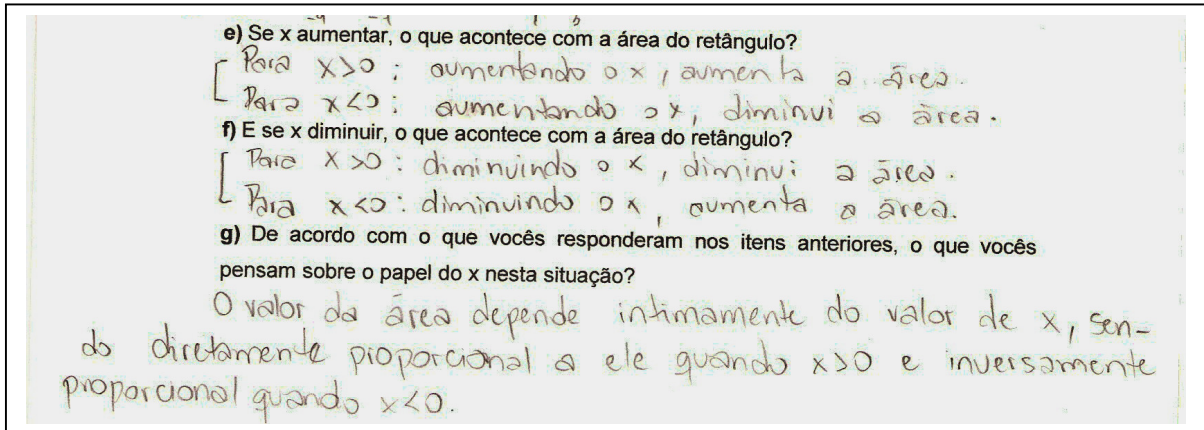 e) Se x aumentar, o que acontece com a área do retângulo?
Para x>0: aumentando o x, aumenta a área.
Para x<0: aumentando o x, diminui a área.
f) E se x diminuir, o que acontece com a área do retângulo?
Para x>0: diminuindo o x, diminui a área.
Para x<0: diminuindo o x, aumenta a área.
g) De acordo com o que vocês responderam nos itens anteriores, o que vocês
pensam sobre o papel do x nesta situação?
O valor da área depende intimamente do valor de x, sen-
do diretamente proporcional a ele quando x>0 e inversamente
proporcional quando x<0.